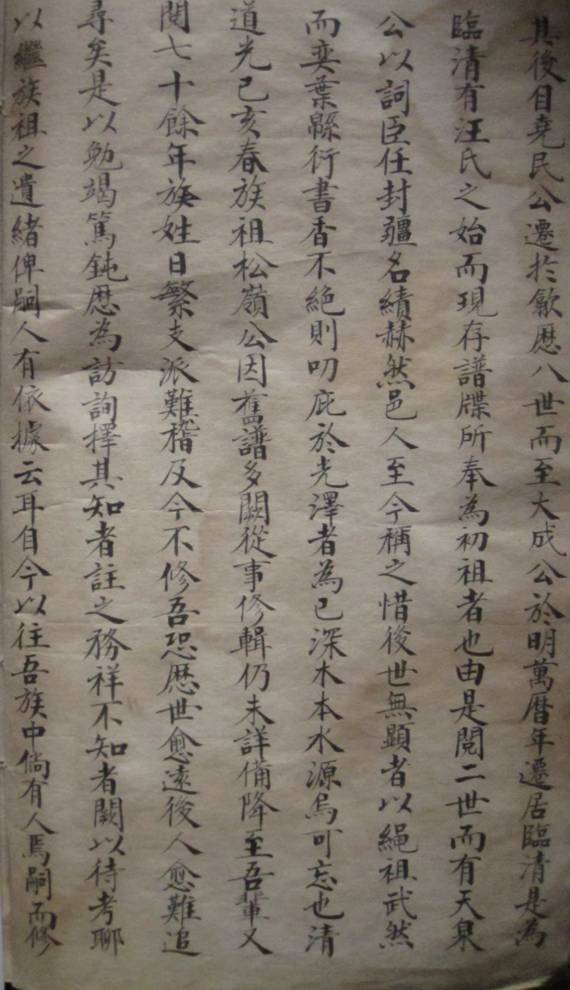 其後自堯民公遷於歙歷八世而至大成公於明萬曆年遷居臨清是為
臨清有汪氏之始而現存譜牒所奉為初祖者也由是閱二世而有天泉
公以詞臣任封疆名績赫然邑人至今稱之惜後世無顯者以繩祖武然
而奕葉緜衍書香不絕則叨庇於光澤者為已深木本水源烏可忘也清
道光己亥春族祖松嶺公因舊譜多闕從事修輯仍未詳備降至吾輩又
閱七十餘年族姓日繁支派難稽及今不修吾恐歷世愈遠後人愈難追
尋矣是以勉竭篤鈍歷為訪詢擇其知者註之務祥不知者闕以待考聊
以繼族祖之遺緒俾嗣人有依據云耳自今以往吾族中倘有人焉嗣而修